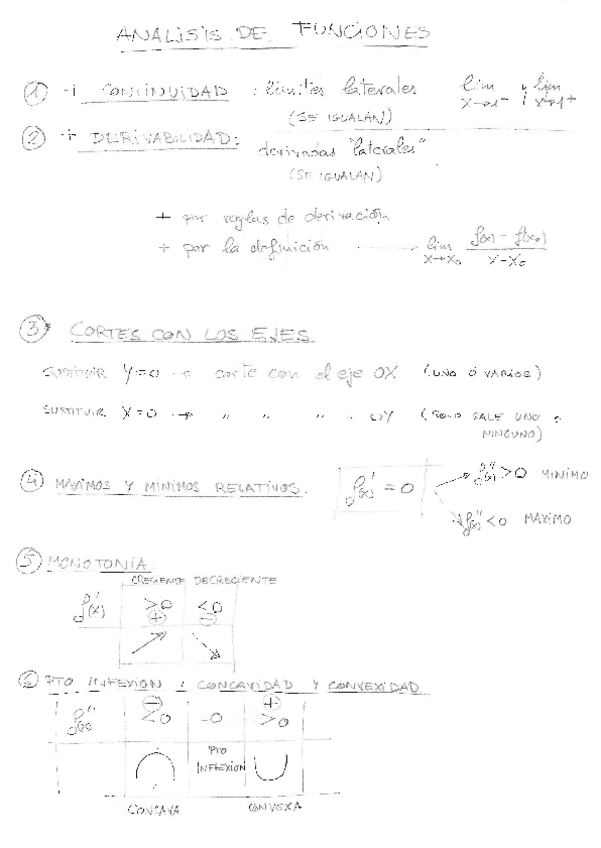 ANALISIS DE FUNCIONES
① CONTINUIDAD : límites laterales lim x→a- y lim x→a+
(SE IGUALAN)
② DERIVABILIDAD: derivadas "laterales"
(SE IGUALAN)
+ por reglas de derivación
+ por la definición lim x→x₀ f(x) - f(x₀) / x - x₀
③ CORTES CON LOS EJES
SUSTITUIR y=0 → corte con el eje OX (UNO ó VARIOS)
SUSTITUIR x=0 → " " " " OY (SOLO SALE UNO o
NINGUNO)
④ MAXIMOS Y MINIMOS RELATIVOS. f'(x) = 0 f''(x) >0 MINIMO
f''(x) <0 MAXIMO
⑤ MONOTONIA
CRECIENTE DECRECIENTE
f'(x) >0 <0
⊕ ⊖
⑥ PTO INFLEXION : CONCAVIDAD Y CONVEXIDAD
⊖ ⊕
f''(x) <0 =0 >0
PTO
INFLEXION
CONCAVA CONVEXA